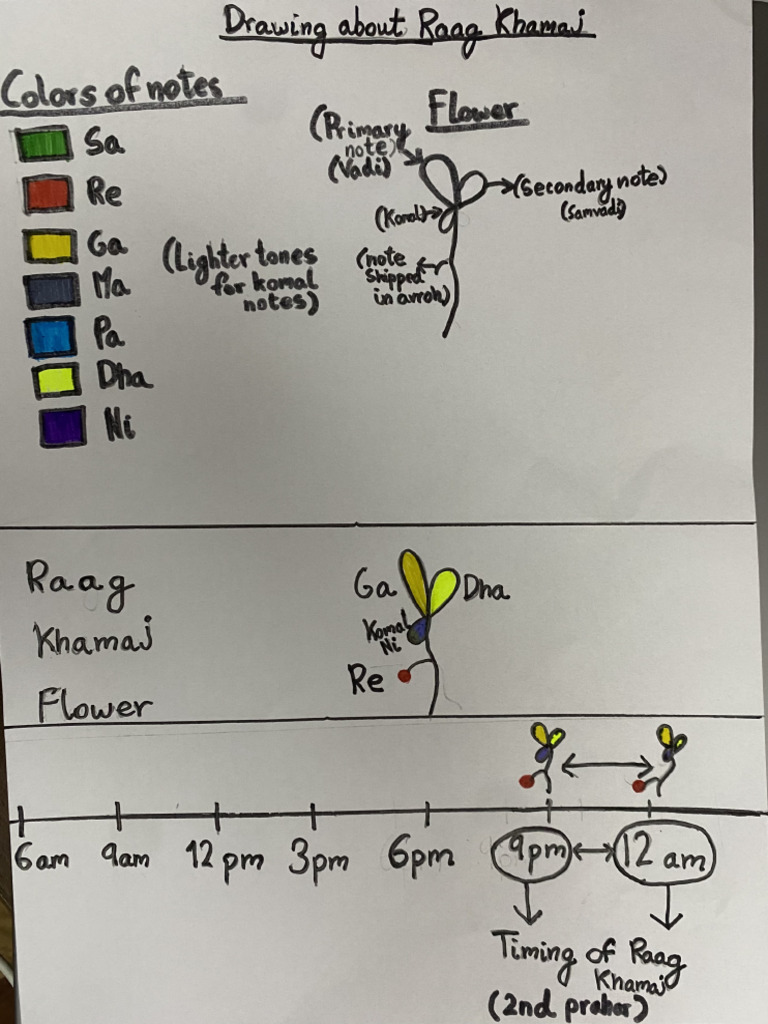 Drawing about Raag Khamaj
Colors of notes
Sa
Re
Ga
Ma
Pa
Dha
Ni
(Lighter tones
for komal
notes)
Flower
(Primary
note)
(Vadi)
(Secondary note)
(Samvadi)
(Komal)
(note
skipped
in arroh)
Raag
Khamaj
Flower
Ga
Dha
Komal
Ni
Re
6am
9am
12pm
3pm
6pm
9pm
12 am
Timing of Raag
Khamaj
(2nd prahar)